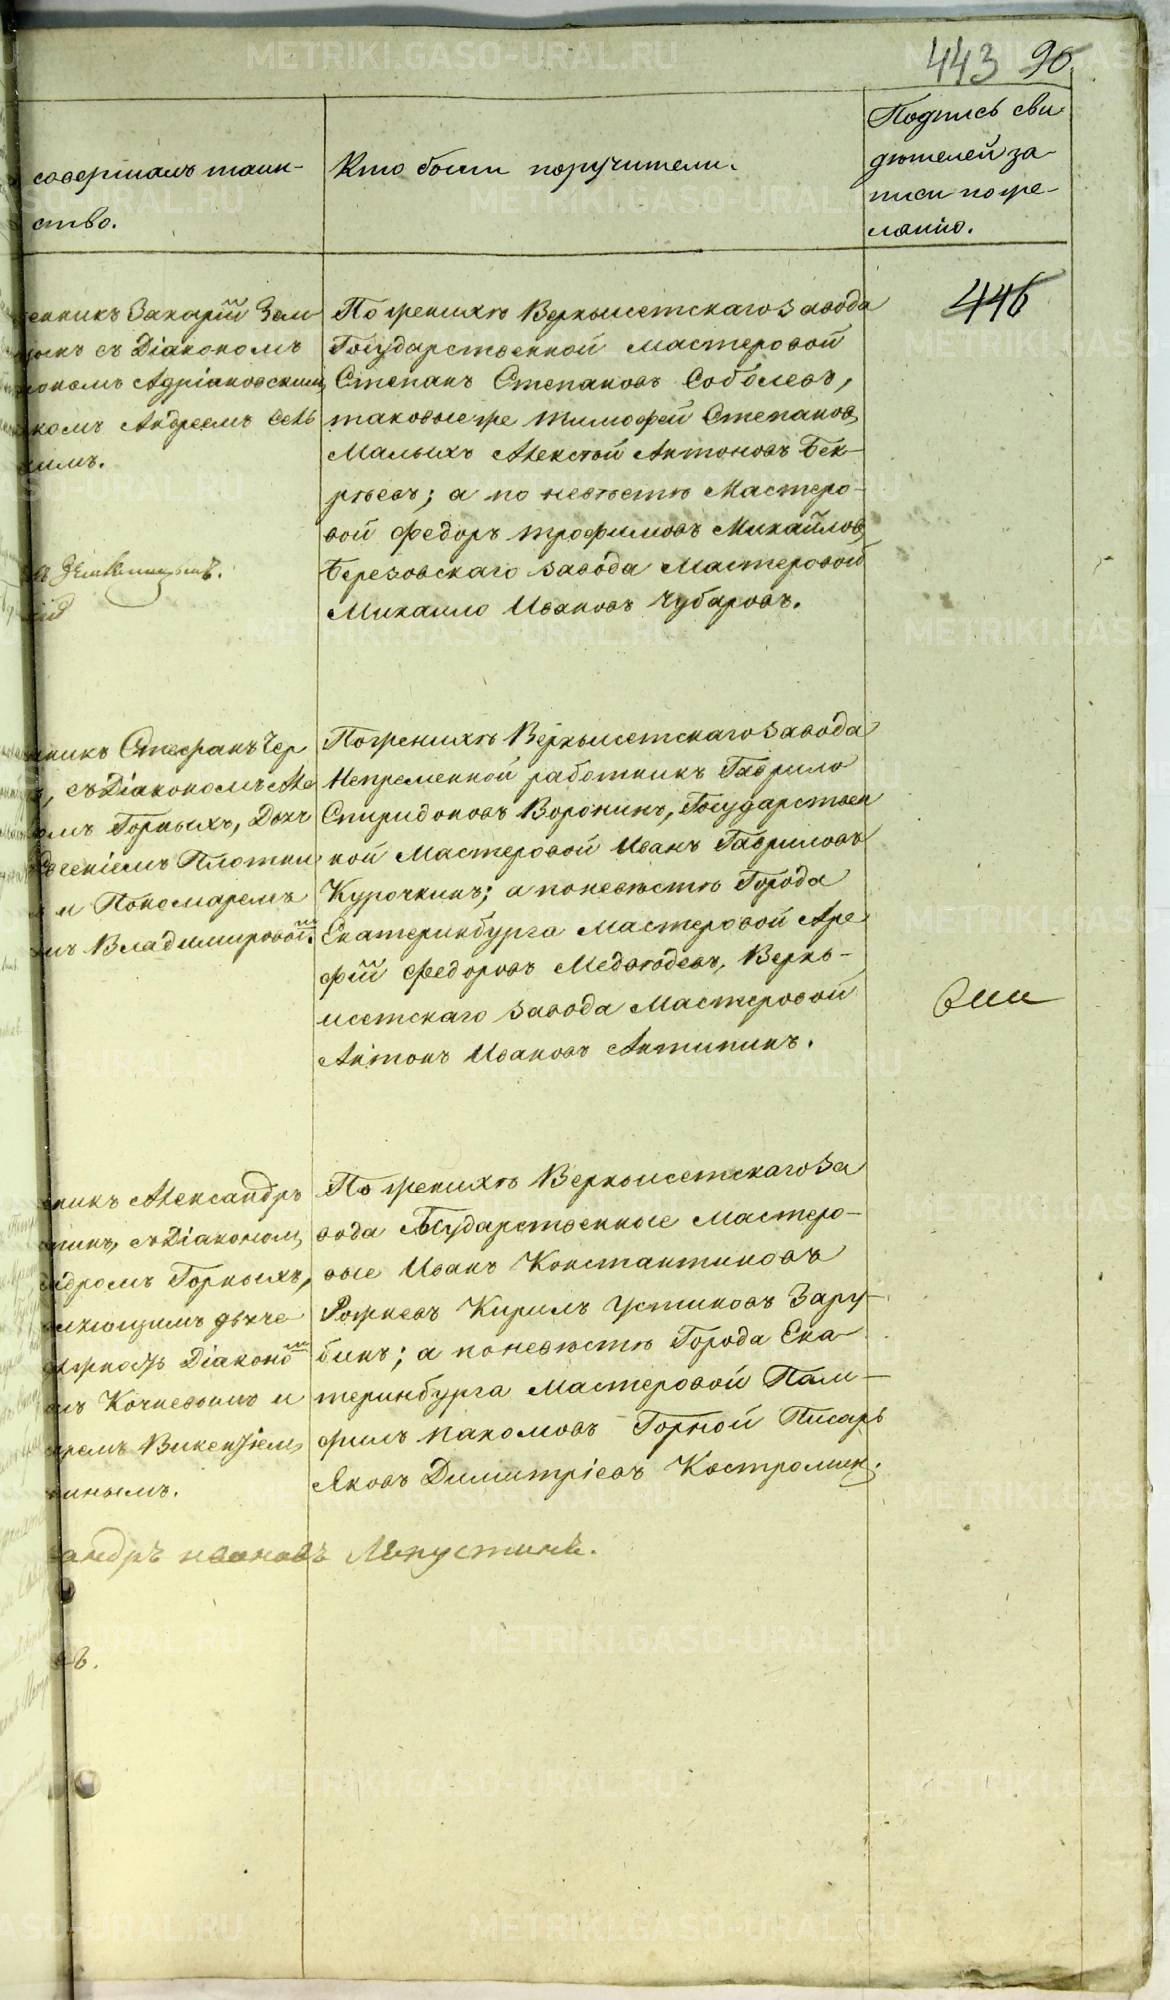 443 90
совершалъ таин-
ство.
Кто были поручители.
Подпись сви
дѣтелей за-
писи по же-
ланію.
446
енникъ Захарій Зем
съ Діакономъ
Адріановскимъ
комъ Андреемъ Сель
кимъ.
Земляницынъ.
По женихѣ Верхъисетскаго завода
Государственной мастеровой
Степанъ Степановъ Соболевъ,
таковые же Тимофей Степановъ
Малыхъ Алексѣй Антоновъ Бек-
рѣевъ; а по невѣстѣ Мастеро-
вой Федоръ Трофимовъ Михайловъ
Березовскаго завода Мастеровой
Михаило Ивановъ Чубаровъ.
никъ Стефанъ Чер
, съ Діакономъ Але
омъ Горныхъ, Дьяч
Евгеніемъ Плотни
и Пономаремъ
мъ Владимировымъ.
По женихѣ Верхъисетскаго завода
Непременной работникъ Гаврило
Спиридоновъ Воронинъ, Государствен
ной Мастеровой Иванъ Гавриловъ
Курочкинъ; а по невѣстѣ Города
Екатеринбурга Мастеровой Аре
фій Федоровъ Медвѣдевъ, Верхъ-
исетскаго завода Мастеровой
Антонъ Ивановъ Антипинъ.
никъ Александръ
тинъ, съ Діакономъ
андромъ Горныхъ,
дьяче
Діакономъ
мъ Кочневымъ и
аремъ Викентіемъ
инымъ.
По женихѣ Верхъисетскаго за
вода Государственные мастеро-
вые Иванъ Константиновъ
Рожневъ Кирилъ Устиновъ Зару-
бинъ; а по невѣстѣ Города Ека-
теринбурга Мастеровой Пам-
филъ Пахомовъ Горной Писарь
Яковъ Димитріевъ Костромин.
андръ Ивановъ Лепустинъ.
въ.
METRIKI.GASO-URAL.RU